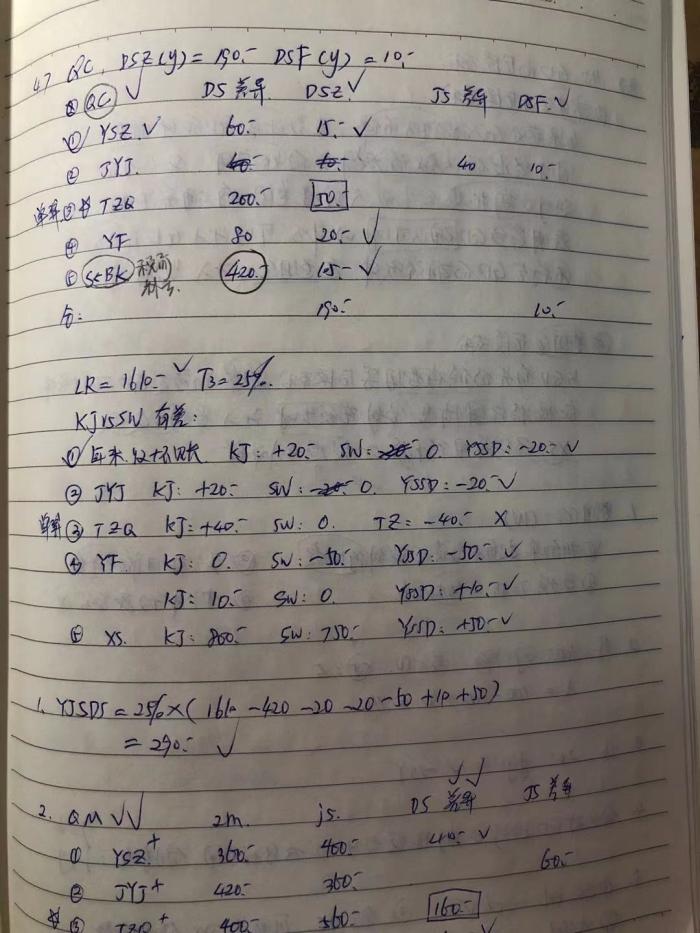 47 QC, DSZ(y) = 190.- DSF(y) = 10.-
② QC ✓ DS差异 DSZ ✓ JS差异 DSF ✓
① YSZ ✓ 60.- 15.- ✓
② JYJ 40.- 10.- 40 10.-
单算 ③ TZQ 200.- 50.-
④ YF 80 20.- ✓
⑤ SSBK 税前 420.- 105.- ✓
合: 190.- 10.-
LR = 1610.- ✓ T3 = 25%.
KJ vs SW 有差:
① KJ: +20.- SW: -20.- 0. YSSD: -20.- ✓
② JYJ KJ: +20.- SW: -20.- 0. YSSD: -20.- ✓
单算 ③ TZQ KJ: +40.- SW: 0. TZ: -40.- X
④ YF KJ: 0. SW: -50.- YSSD: -50.- ✓
KJ: 10.- SW: 0. YSSD: +10.- ✓
⑤ XS. KJ: 800.- SW: 750.- YSSD: +50.- ✓
1. YJSDS = 25% × (1610 - 420 - 20 - 20 - 50 + 10 + 50)
= 290.- ✓
2. QM ✓✓ zm. js. DS差异 ✓✓ JS差异
① YSZ + 360.- 400.- 40.- ✓
② JYJ + 420.- 360.- 60.-
③ TZQ + 400.- 560.- 160.-